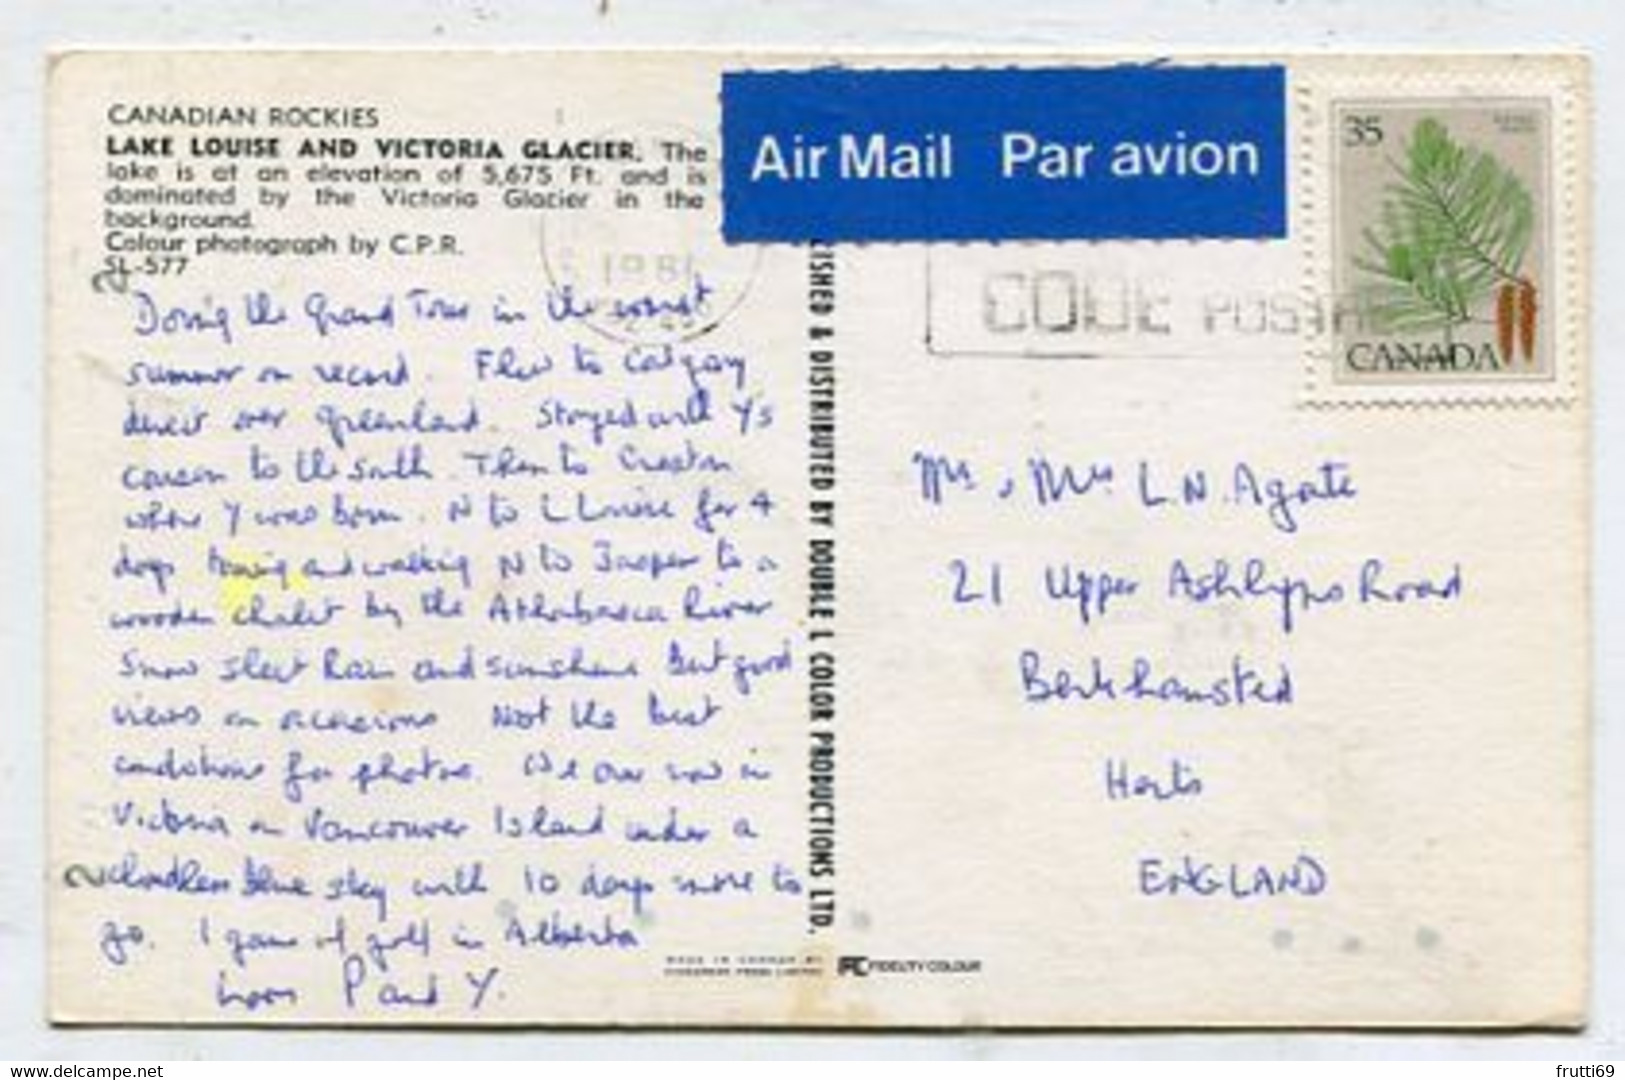 CANADIAN ROCKIES
LAKE LOUISE AND VICTORIA GLACIER. The
lake is at an elevation of 5,675 Ft. and is
dominated by the Victoria Glacier in the
background.
Colour photograph by C.P.R.
SL-577
Doing the Grand Tour in the worst
summer on record. Flew to Calgary
direct over Greenland. Stayed with Y's
cousin to the South. Then to Creston
where Y was born. N to L Louise for 4
days and walking N to Jasper to a
wooden chalet by the Athabasca River
Snow sleet Rain and sunshine But good
views on occasions Not the best
conditions for photos. We are now in
Victoria on Vancouver Island under a
cloudless blue sky with 10 days more to
go. 1 game of golf in Alberta
from P and Y.
Air Mail Par avion
35
CANADA
1981
CODE POSTAL
LISHED & DISTRIBUTED BY DOUBLE L COLOR PRODUCTIONS LTD.
Mr & Mrs L N. Agate
21 Upper Ashlyns Road
Berkhamsted
Herts
ENGLAND
MADE IN CANADA BY
FC FIDELITY COLOUR
frutti69